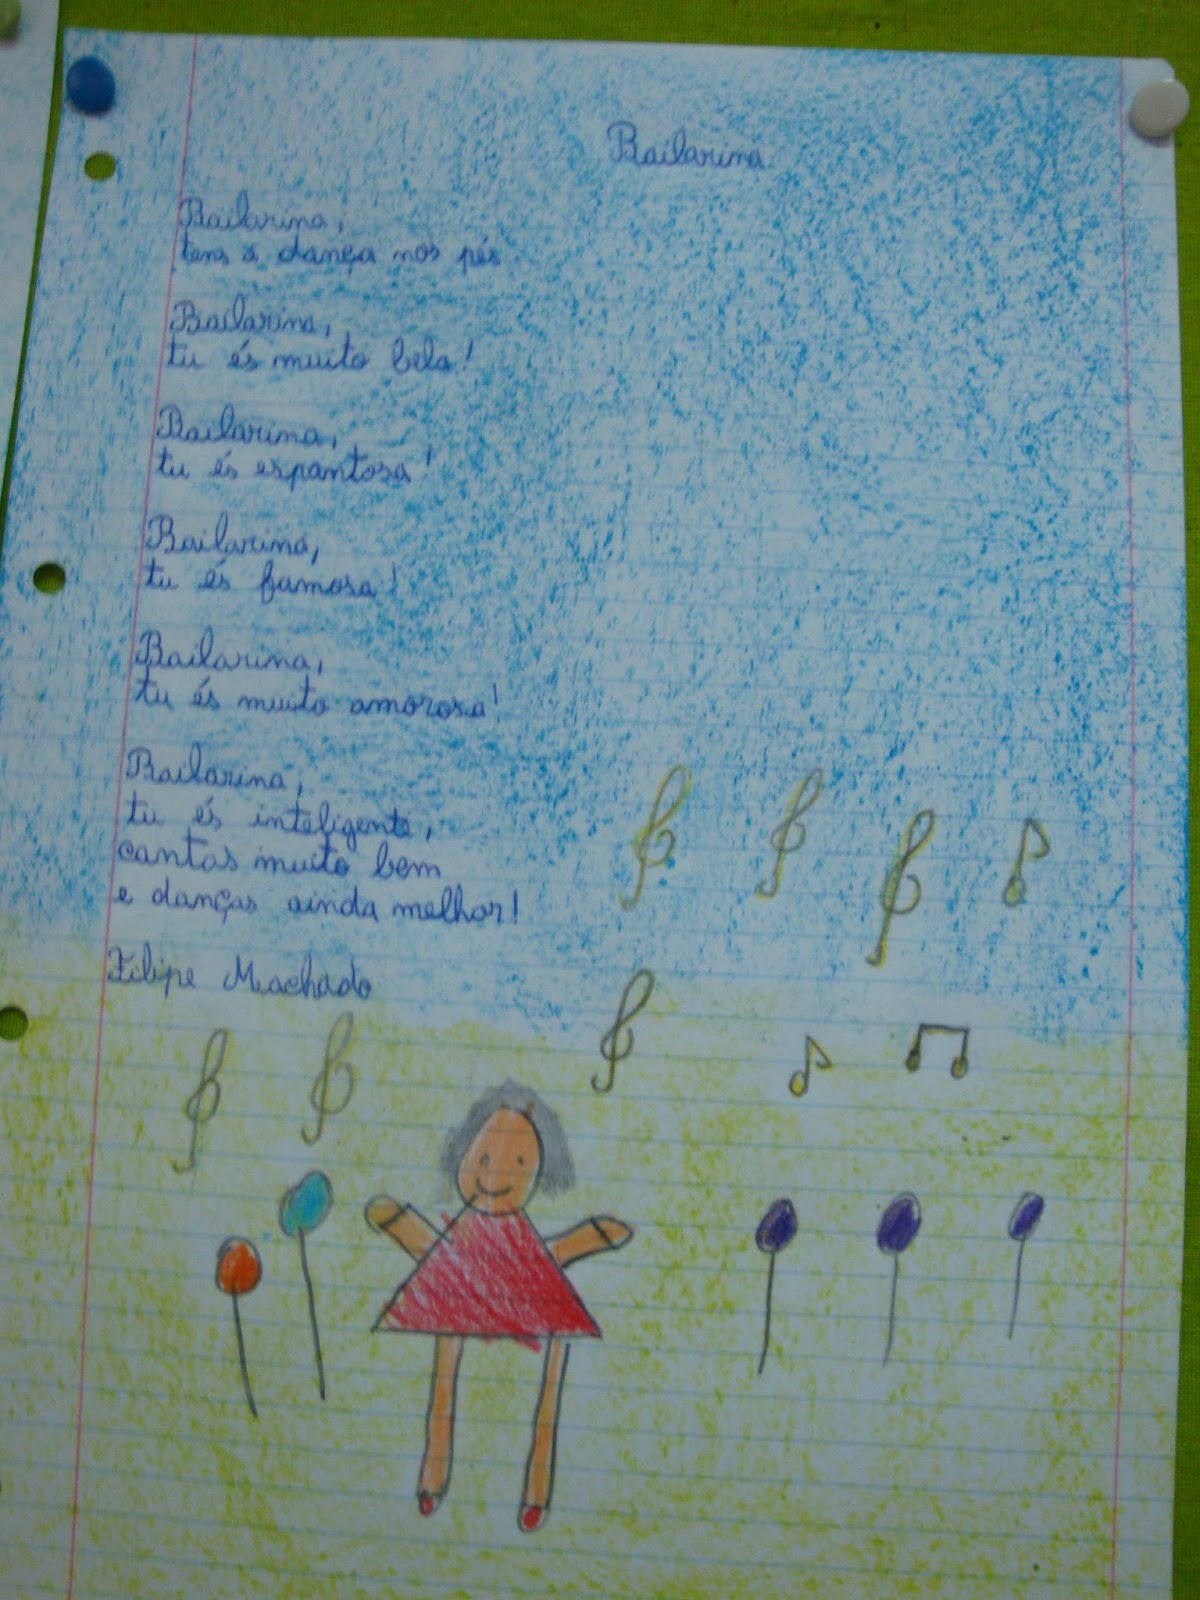 Bailarina
Bailarina,
tens a dança nos pés.
Bailarina,
tu és muito bela!
Bailarina,
tu és espantosa!
Bailarina,
tu és famosa!
Bailarina,
tu és muito amorosa!
Bailarina,
tu és inteligente,
cantas muito bem
e danças ainda melhor!
Filipe Machado